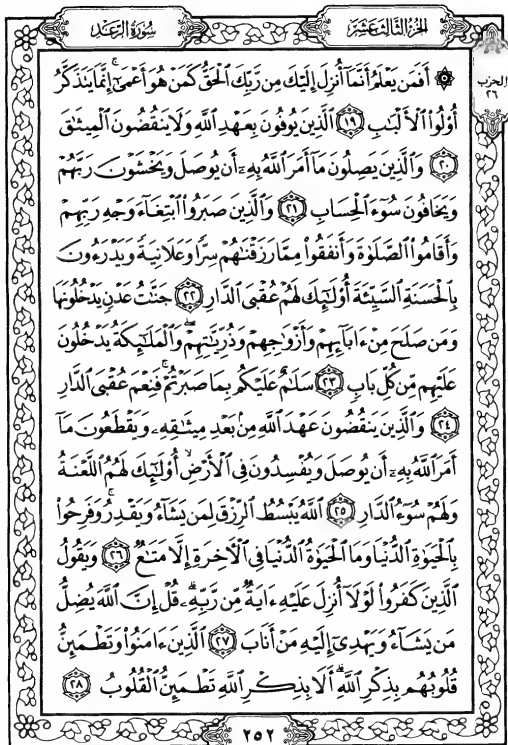 الجزء الثالث عشر
سُورَةُ الرَّعْد
الحزب
٢٦
۞ أَفَمَن يَعْلَمُ أَنَّمَآ أُنزِلَ إِلَيْكَ مِن رَّبِّكَ ٱلْحَقُّ كَمَنْ هُوَ أَعْمَىٰٓ ۚ إِنَّمَا يَتَذَكَّرُ
أُو۟لُوا۟ ٱلْأَلْبَـٰبِ ١٩ ٱلَّذِينَ يُوفُونَ بِعَهْدِ ٱللَّهِ وَلَا يَنقُضُونَ ٱلْمِيثَـٰقَ
٢٠ وَٱلَّذِينَ يَصِلُونَ مَآ أَمَرَ ٱللَّهُ بِهِۦٓ أَن يُوصَلَ وَيَخْشَوْنَ رَبَّهُمْ
وَيَخَافُونَ سُوٓءَ ٱلْحِسَابِ ٢١ وَٱلَّذِينَ صَبَرُوا۟ ٱبْتِغَآءَ وَجْهِ رَبِّهِمْ
وَأَقَامُوا۟ ٱلصَّلَوٰةَ وَأَنفَقُوا۟ مِمَّا رَزَقْنَـٰهُمْ سِرًّا وَعَلَانِيَةً وَيَدْرَءُونَ
بِٱلْحَسَنَةِ ٱلسَّيِّئَةَ أُو۟لَـٰٓئِكَ لَهُمْ عُقْبَى ٱلدَّارِ ٢٢ جَنَّـٰتُ عَدْنٍ يَدْخُلُونَهَا
وَمَن صَلَحَ مِنْ ءَابَآئِهِمْ وَأَزْوَٰجِهِمْ وَذُرِّيَّـٰتِهِمْ ۖ وَٱلْمَلَـٰٓئِكَةُ يَدْخُلُونَ
عَلَيْهِم مِّن كُلِّ بَابٍ ٢٣ سَلَـٰمٌ عَلَيْكُم بِمَا صَبَرْتُمْ ۚ فَنِعْمَ عُقْبَى ٱلدَّارِ
٢٤ وَٱلَّذِينَ يَنقُضُونَ عَهْدَ ٱللَّهِ مِنۢ بَعْدِ مِيثَـٰقِهِۦ وَيَقْطَعُونَ مَآ
أَمَرَ ٱللَّهُ بِهِۦٓ أَن يُوصَلَ وَيُفْسِدُونَ فِى ٱلْأَرْضِ ۙ أُو۟لَـٰٓئِكَ لَهُمُ ٱللَّعْنَةُ
وَلَهُمْ سُوٓءُ ٱلدَّارِ ٢٥ ٱللَّهُ يَبْسُطُ ٱلرِّزْقَ لِمَن يَشَآءُ وَيَقْدِرُ ۚ وَفَرِحُوا۟
بِٱلْحَيَوٰةِ ٱلدُّنْيَا وَمَا ٱلْحَيَوٰةُ ٱلدُّنْيَا فِى ٱلْـَٔاخِرَةِ إِلَّا مَتَـٰعٌ ٢٦ وَيَقُولُ
ٱلَّذِينَ كَفَرُوا۟ لَوْلَآ أُنزِلَ عَلَيْهِ ءَايَةٌ مِّن رَّبِّهِۦ ۗ قُلْ إِنَّ ٱللَّهَ يُضِلُّ
مَن يَشَآءُ وَيَهْدِىٓ إِلَيْهِ مَنْ أَنَابَ ٢٧ ٱلَّذِينَ ءَامَنُوا۟ وَتَطْمَئِنُّ
قُلُوبُهُم بِذِكْرِ ٱللَّهِ ۗ أَلَا بِذِكْرِ ٱللَّهِ تَطْمَئِنُّ ٱلْقُلُوبُ ٢٨
٢٥٢